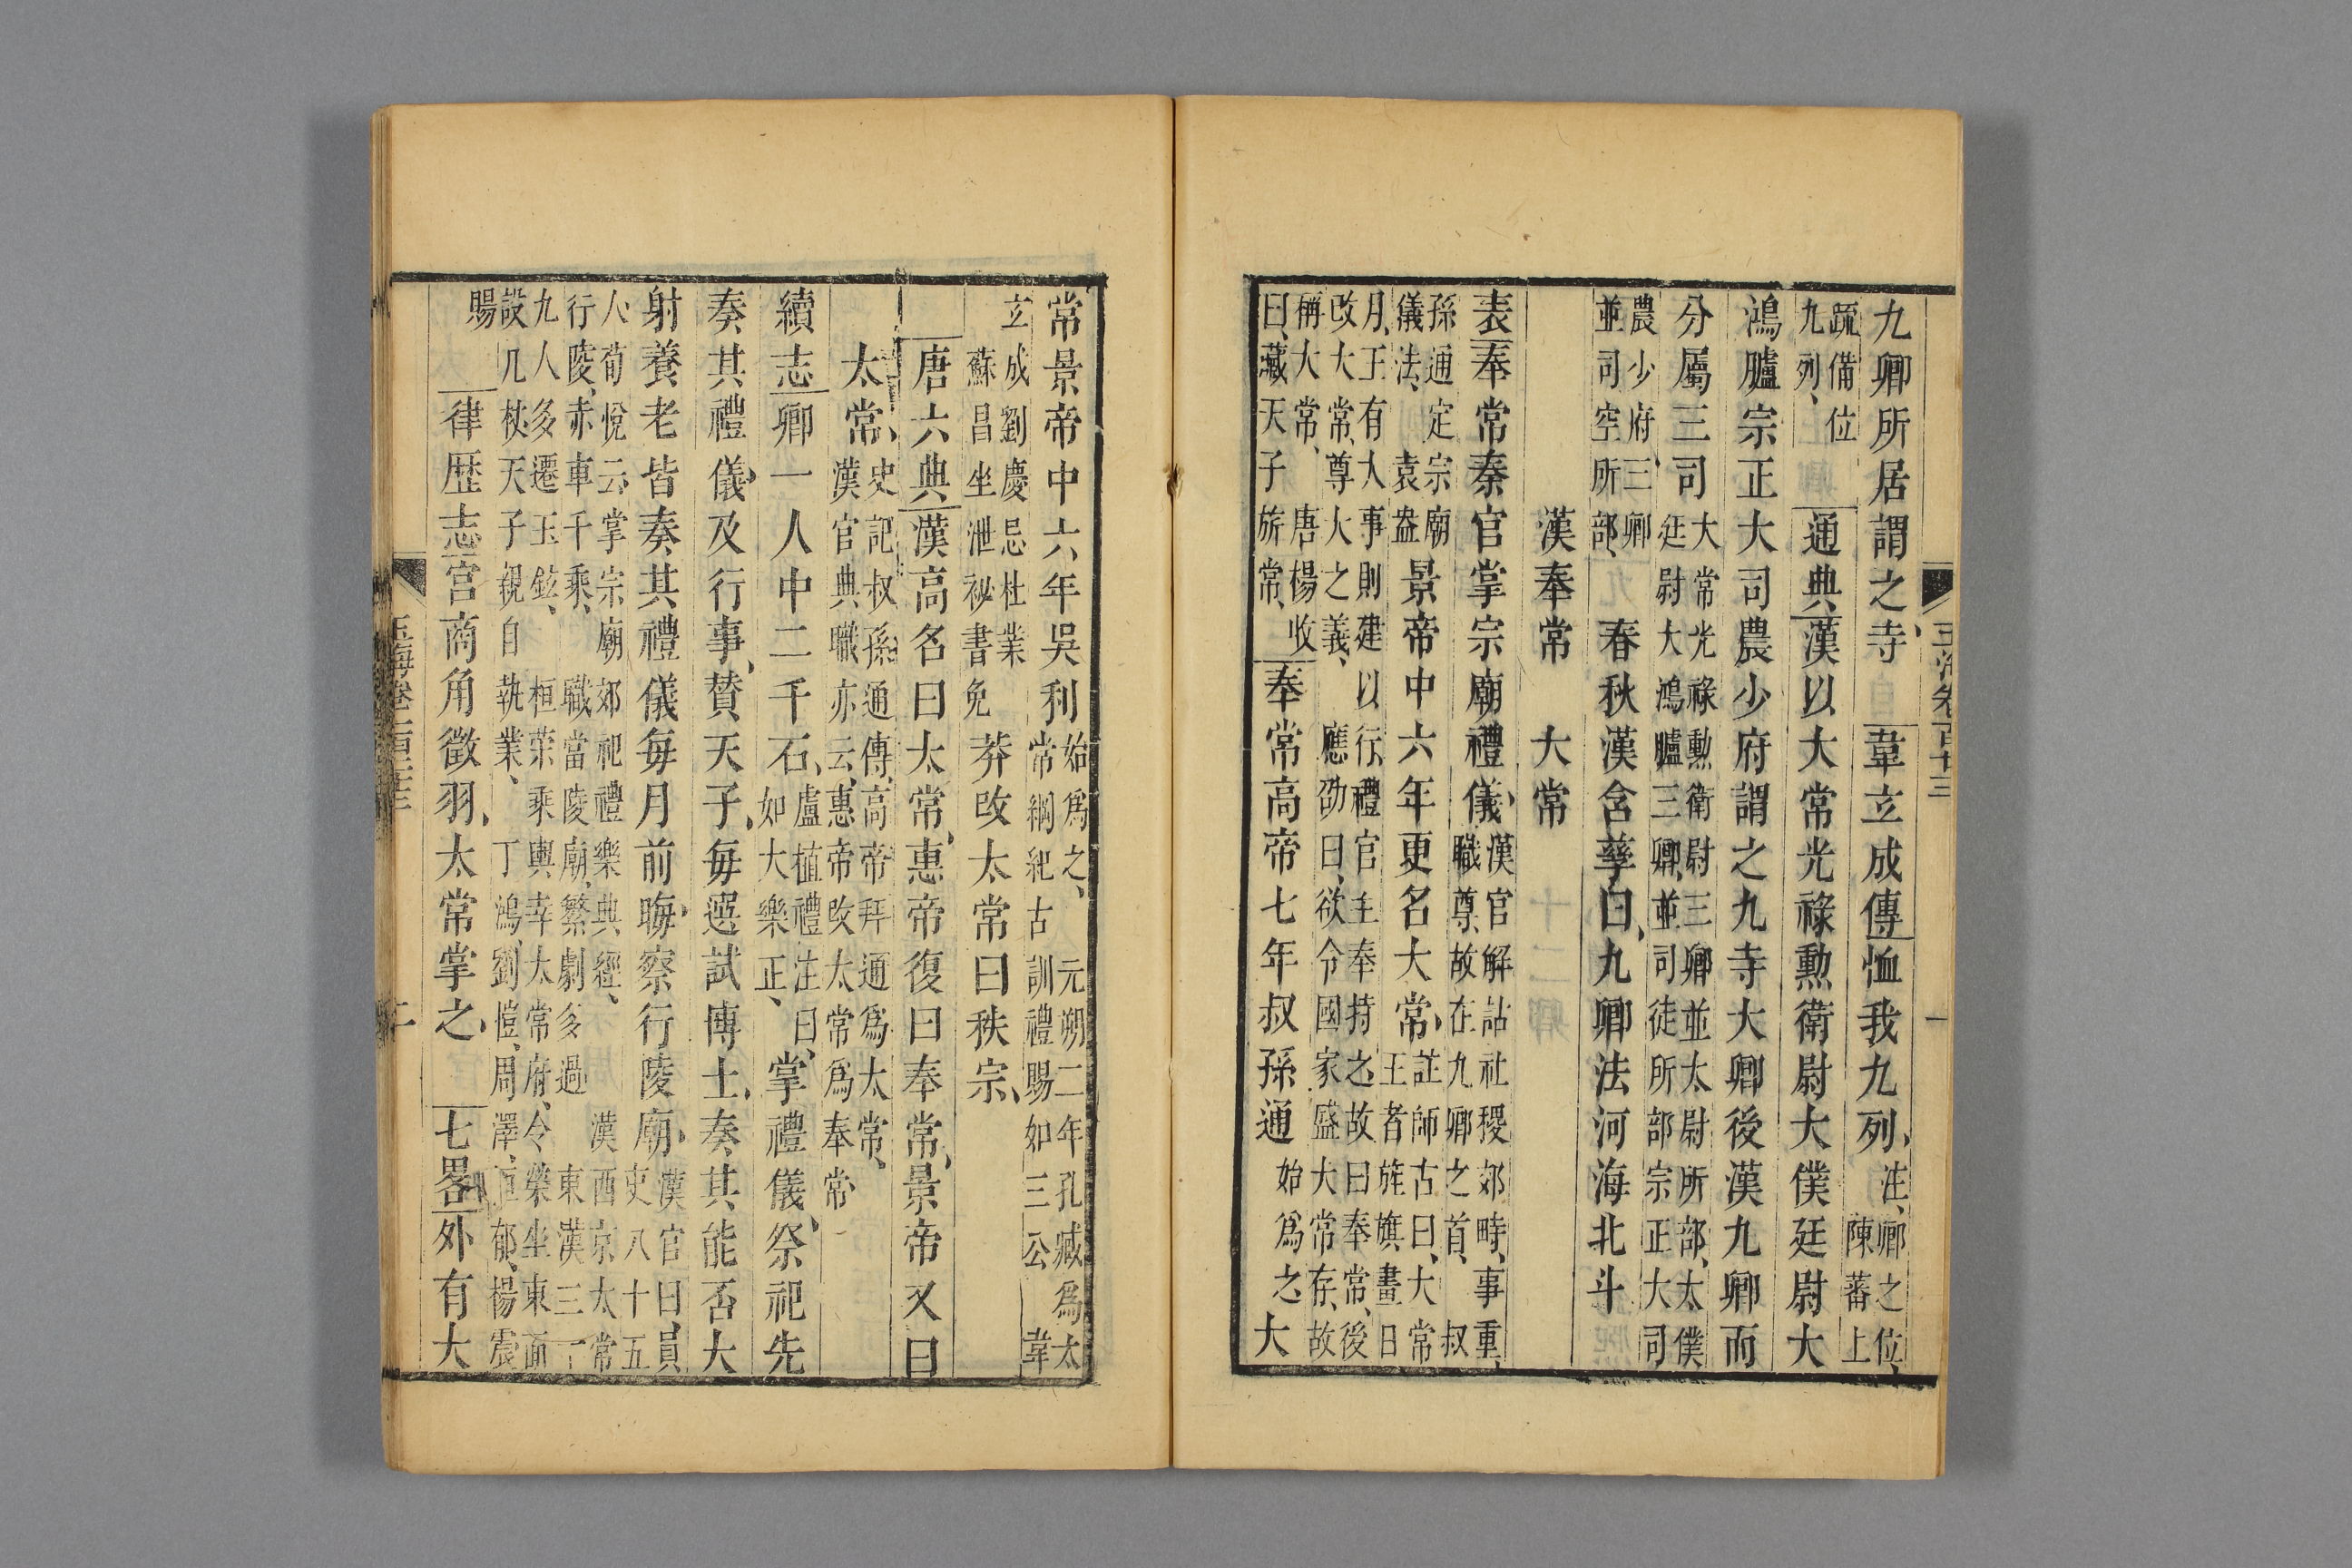 九卿所居謂之寺韋立成傳恤我九列注卿之位陳蕃上
疏備位九列通典漢以大常光祿勲衛尉大僕廷尉大
鴻臚宗正大司農少府謂之九寺大卿後漢九卿而
分屬三司大常光祿勲衛尉三卿並太尉所部太僕廷尉大鴻臚三卿並司徒所部宗正大司
農少府三卿並司空所部春秋漢含孳曰九卿法河海北斗
漢奉常 大常
表奉常秦官掌宗廟禮儀漢官解詁社稷郊畤事重職尊故在九卿之首叔
孫通定宗廟儀法袁盎景帝中六年更名大常註師古曰大常王者旌旗畫日
月王有大事則建以行禮官主奉持之故曰奉常後改大常尊大之義應劭曰欲令國家盛大常存故
稱大常唐楊收曰藏天子旂常奉常高帝七年叔孫通始爲之大
常景帝中六年吳利始爲之元朔二年孔臧爲太常綱紀古訓禮賜如三公韋
玄成劉慶忌杜業蘇昌坐泄祕書免莽改太常曰秩宗
唐六典漢高名曰太常惠帝復曰奉常景帝又曰
太常史記叔孫通傳高帝拜通爲太常漢官典職亦云惠帝改太常爲奉常
續志卿一人中二千石盧植禮注曰如大樂正掌禮儀祭祀先
奏其禮儀及行事贊天子每選試博士奏其能否大
射養老皆奏其禮儀每月前晦察行陵廟漢官曰員吏八十五
人荀悅云掌宗廟郊祀禮樂典經漢西京太常行陵赤車千乘職當陵廟繁劇多過東漢三
九人多遷玉鉉桓荣乘輿幸太常府令榮坐東面設几杖天子親自執業丁鴻劉愷周澤郁楊震
賜律歴志宫商角徵羽太常掌之七畧外有大